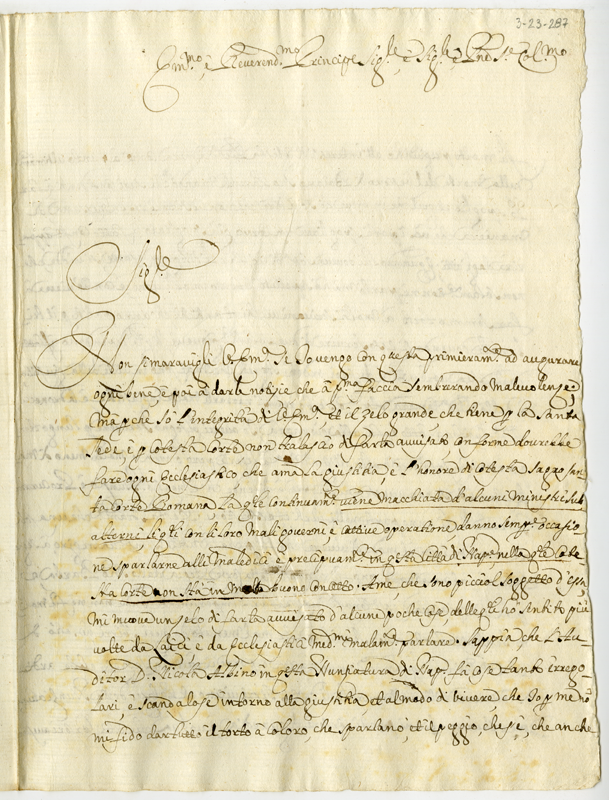 3-23-287
Em.mo, e Reverend.mo Principe Sig.re e Sig.re e Pnd S.e Col.mo
Sig.re
Non si maravigli V. Em.a se Io vengo con questa primieram.te ad augurarle
ogni bene, e poi a darle notitie che a p.ma faccia sembrirando malevolenze;
Mà p̱che sò l'integrità di V. Em.a, et il zelo grande che tiene p̱ la Santa
Sede, e p̱ cotesta Corte non tralascio di farla avvisata, conforme dovrebbe
fare ogni Ecclesiastico, che ama la giustitia, e l'honore di cotesta Sagrosan-
ta Corte Romana La q̃le continuam.te viene macchiata d'alcuni Ministri sub
alterni, li q̃li con li loro mali governi, e cattive operatione danno semp̱e occasio
ne sparlarne alli maledici e precipuam.te in q̃esta Città di Nap. nella q̃le Cote
sta Corte non stà in molto buono concetto. A me, che sono picciol soggetto d'essa,
mi muove un zelo di farla avvisata d'alcune poche cose delle q̃li hò sentito più
volte da Laici e da Ecclesiastici med.mi malam.te parlare. Sappia che l'Au-
ditor D. Nicola Albino in q̃esta Nunsiatura di Nap. fà cose tanto irrego-
lari, e scandalose intorno alla giustitia et al modo di vivere, che Io p̱ me nò
mi fido dar tutto il torto a coloro, che sparlano, et il peggio, che s'è, che anche